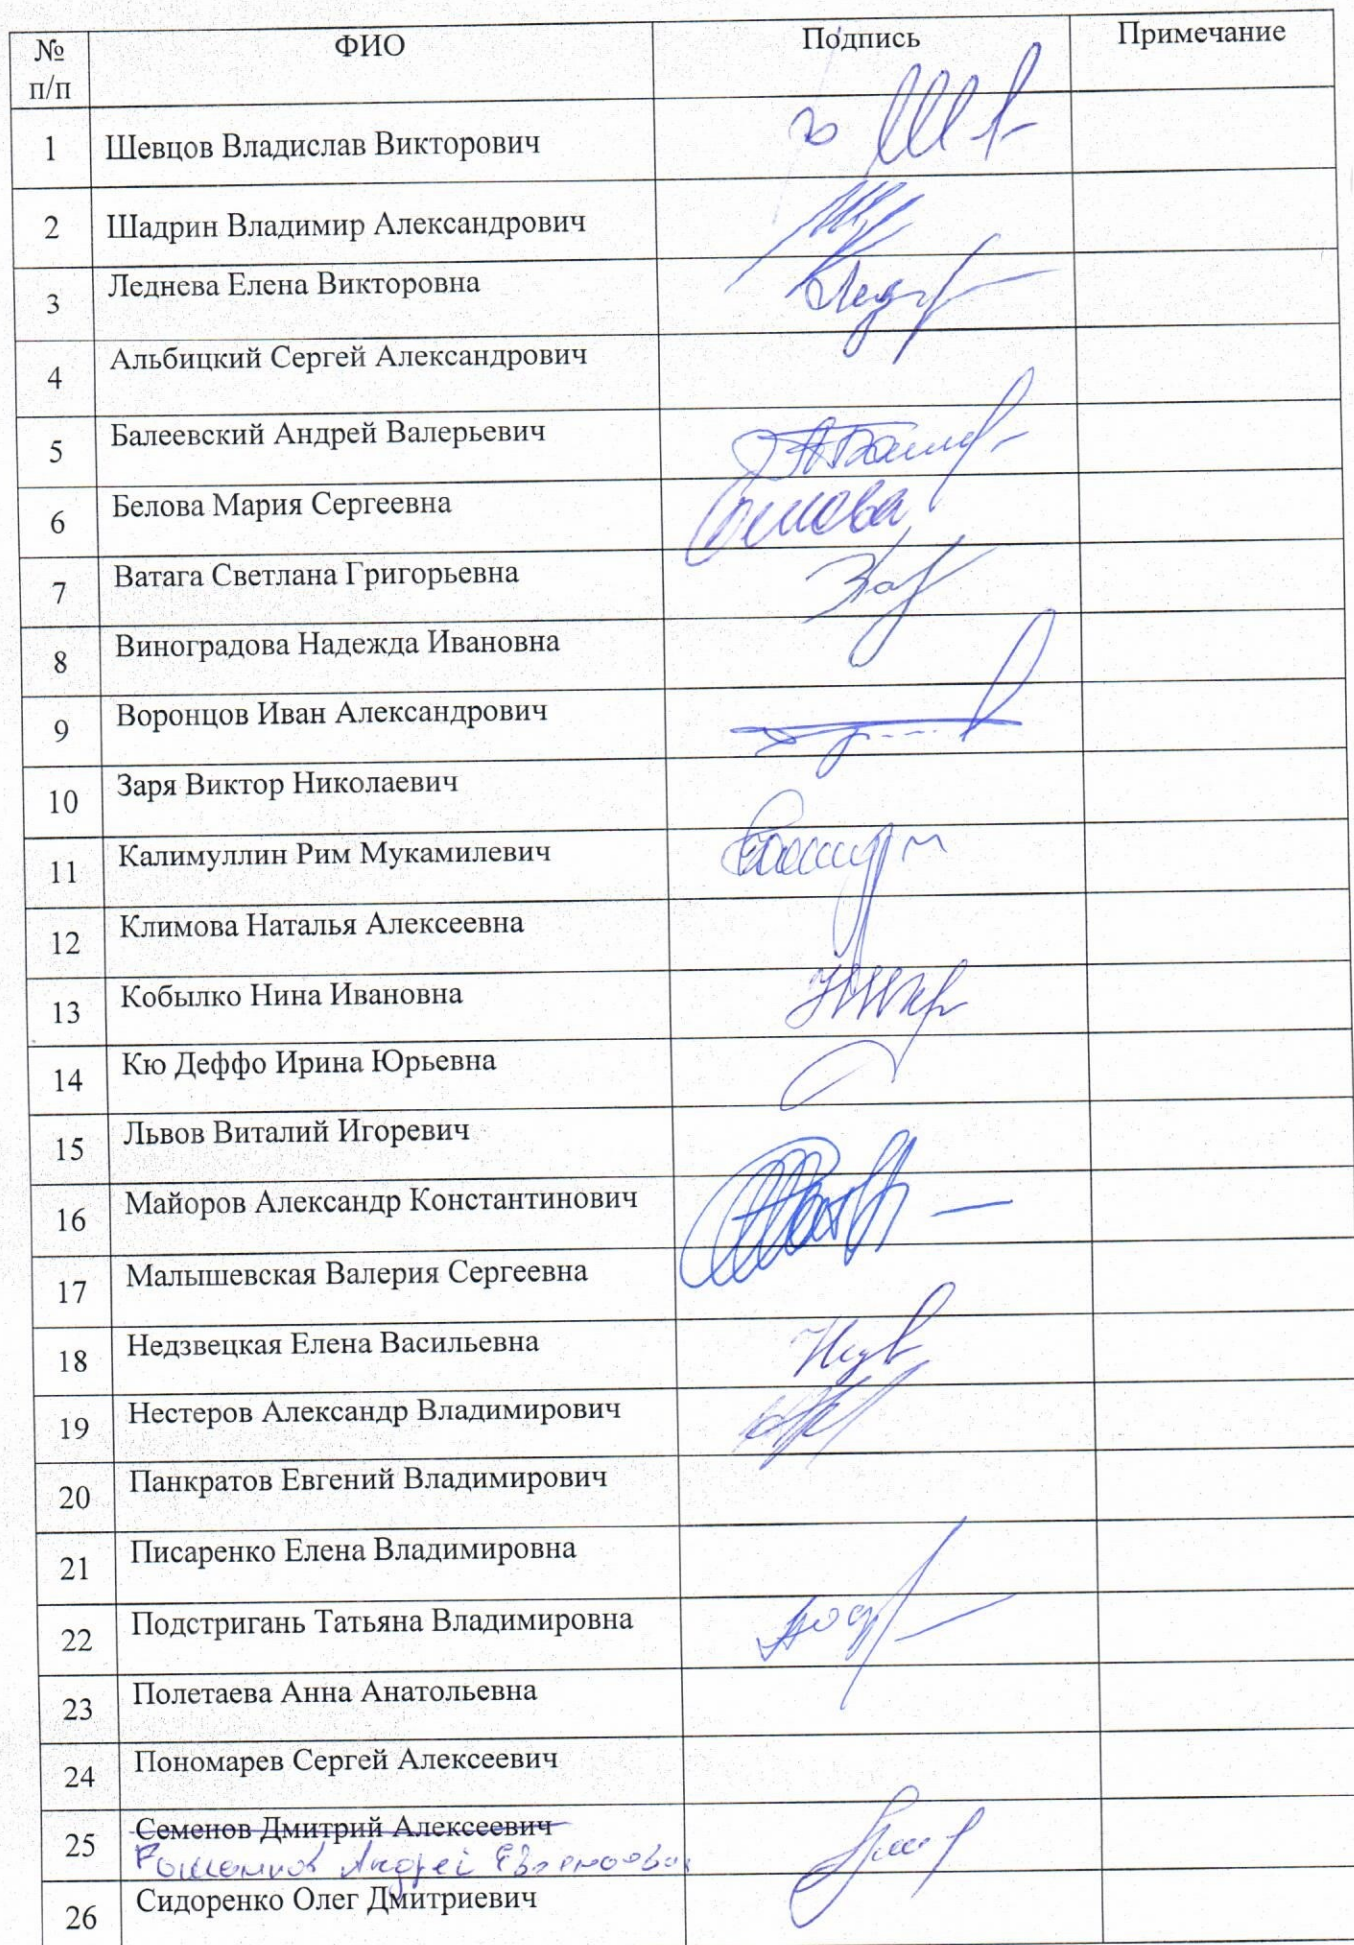 № п/п ФИО Подпись Примечание
1 Шевцов Владислав Викторович
2 Шадрин Владимир Александрович
3 Леднева Елена Викторовна
4 Альбицкий Сергей Александрович
5 Балеевский Андрей Валерьевич
6 Белова Мария Сергеевна Белова
7 Ватага Светлана Григорьевна
8 Виноградова Надежда Ивановна
9 Воронцов Иван Александрович
10 Заря Виктор Николаевич
11 Калимуллин Рим Мукамилевич
12 Климова Наталья Алексеевна
13 Кобылко Нина Ивановна
14 Кю Деффо Ирина Юрьевна
15 Львов Виталий Игоревич
16 Майоров Александр Константинович
17 Малышевская Валерия Сергеевна
18 Недзвецкая Елена Васильевна
19 Нестеров Александр Владимирович
20 Панкратов Евгений Владимирович
21 Писаренко Елена Владимировна
22 Подстригань Татьяна Владимировна
23 Полетаева Анна Анатольевна
24 Пономарев Сергей Алексеевич
25 Семенов Дмитрий Алексеевич
Андрей Евгеньевич
26 Сидоренко Олег Дмитриевич